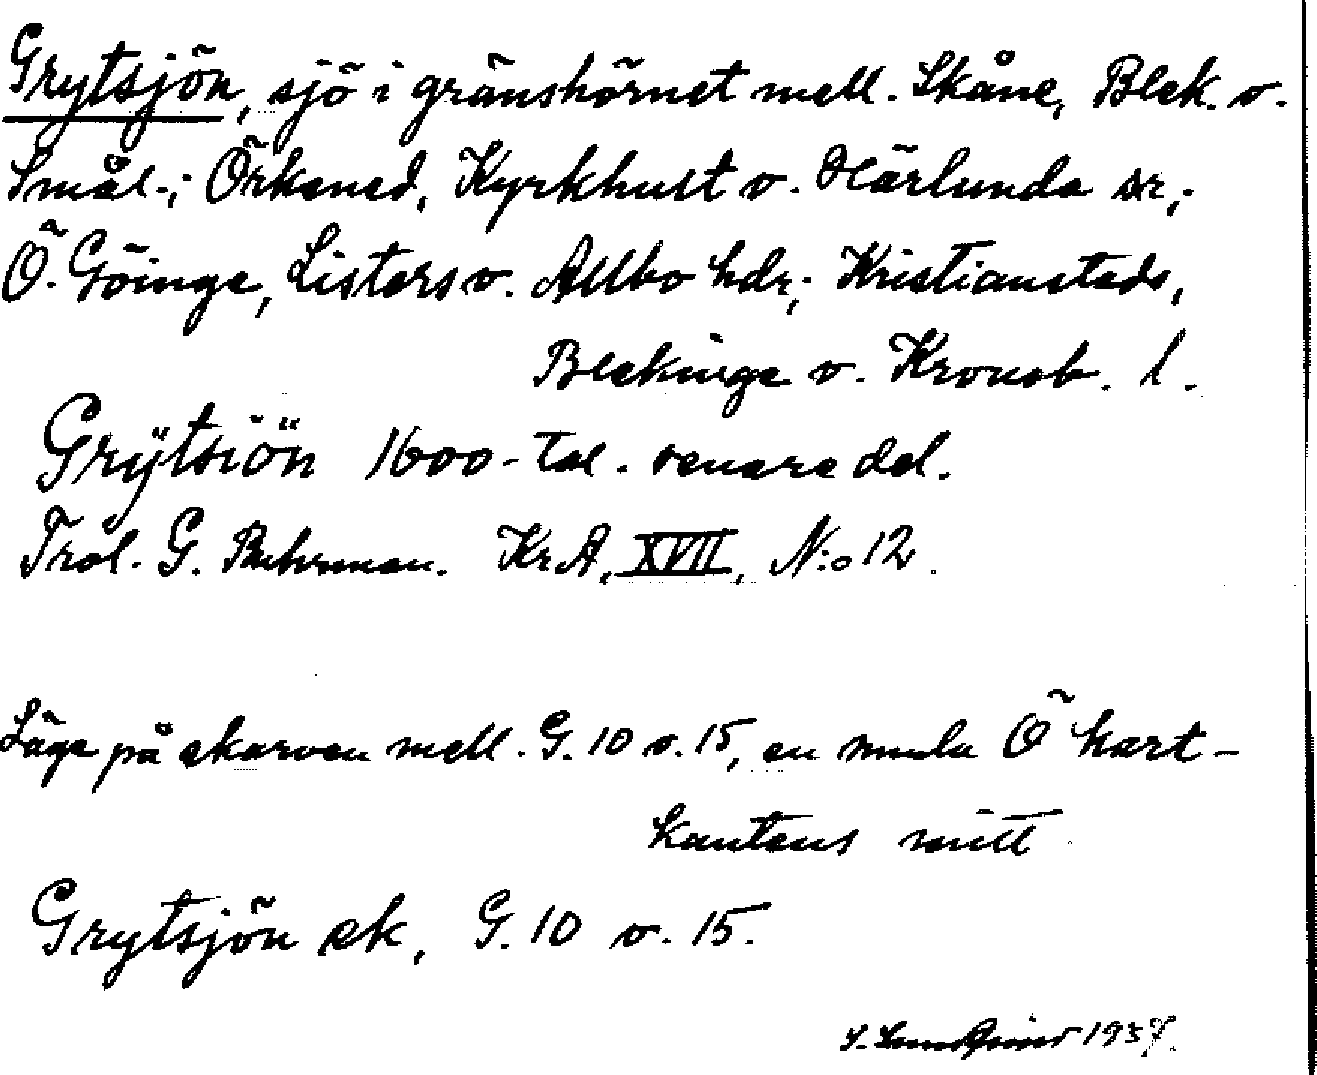 Grytsjön, sjö i gränshörnet mell. Skåne, Blek. o.
Smål.; Örkened, Kyrkhult o. Härlunda sr,;
Ö. Göinge, Listers o. Allbo hdr,; Kristianstads,
Blekinge o. Kronob. l.
Grÿtsiön 1600-tal. senare del.
Trol. G. Buhrman. KrA, XVII, N:o 12.
Läge på skarven mell. G. 10 o. 15, en smula Ö kart-
kantens mitt
Grytsjön ek, G. 10 o. 15.
1937.